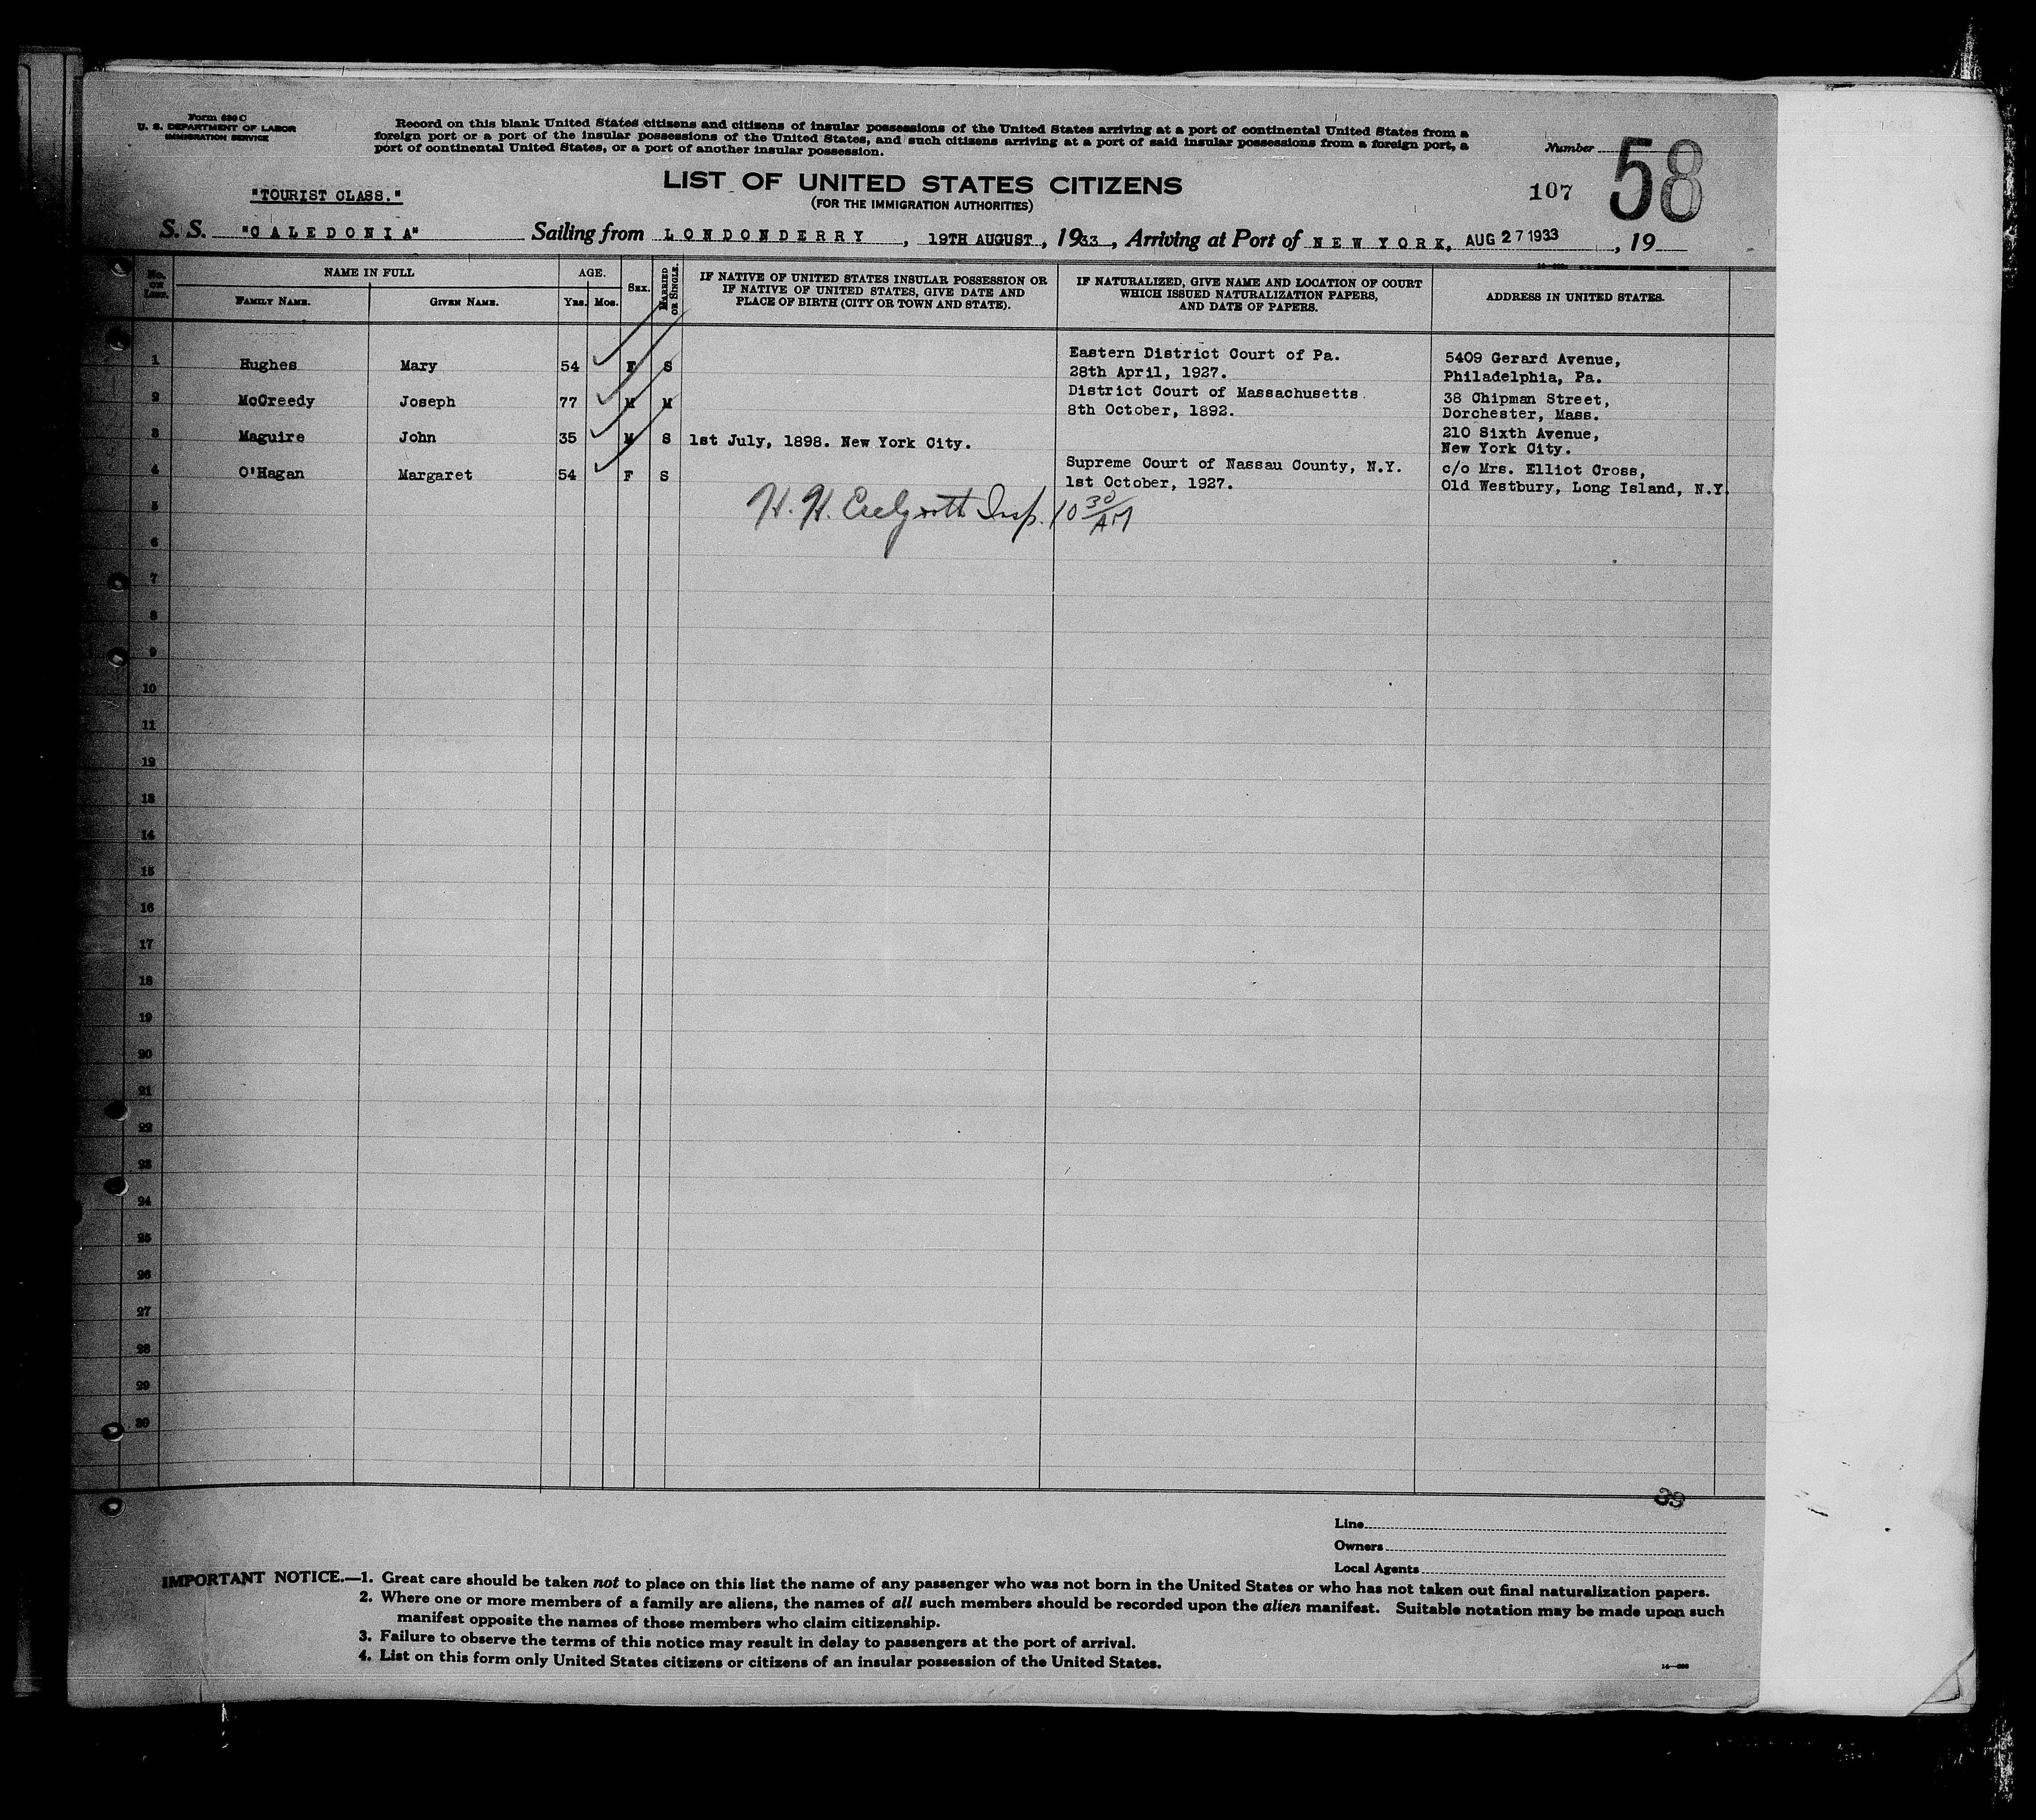 Form 630 C
U. S. DEPARTMENT OF LABOR
IMMIGRATION SERVICE
Record on this blank United States citizens and citizens of insular possessions of the United States arriving at a port of continental United States from a
foreign port or a port of the insular possessions of the United States, and such citizens arriving at a port of said insular possessions from a foreign port, a
port of continental United States, or a port of another insular possession.
Number
58
107
LIST OF UNITED STATES CITIZENS
(FOR THE IMMIGRATION AUTHORITIES)
"TOURIST CLASS."
S. S. "CALEDONIA" Sailing from LONDONDERRY, 19TH AUGUST, 1933, Arriving at Port of NEW YORK, AUG 27 1933, 19
No. on List. NAME IN FULL AGE. Sex. Married or Single. IF NATIVE OF UNITED STATES INSULAR POSSESSION OR IF NATIVE OF UNITED STATES, GIVE DATE AND PLACE OF BIRTH (CITY OR TOWN AND STATE). IF NATURALIZED, GIVE NAME AND LOCATION OF COURT WHICH ISSUED NATURALIZATION PAPERS, AND DATE OF PAPERS. ADDRESS IN UNITED STATES.
Family Name. Given Name. Yrs. Mos.
1 Hughes Mary 54 F S Eastern District Court of Pa. 28th April, 1927. 5409 Gerard Avenue, Philadelphia, Pa.
2 McCreedy Joseph 77 M M District Court of Massachusetts 8th October, 1892. 38 Chipman Street, Dorchester, Mass.
3 Maguire John 35 M S 1st July, 1898. New York City. 210 Sixth Avenue, New York City.
4 O'Hagan Margaret 54 F S Supreme Court of Nassau County, N.Y. 1st October, 1927. c/o Mrs. Elliot Cross, Old Westbury, Long Island, N.Y.
5
H. H. Insp. 10 30/AM
6
7
8
9
10
11
12
13
14
15
16
17
18
19
20
21
22
23
24
25
26
27
28
29
30
39
Line
Owners
Local Agents
IMPORTANT NOTICE.—1. Great care should be taken not to place on this list the name of any passenger who was not born in the United States or who has not taken out final naturalization papers.
2. Where one or more members of a family are aliens, the names of all such members should be recorded upon the alien manifest. Suitable notation may be made upon such
manifest opposite the names of those members who claim citizenship.
3. Failure to observe the terms of this notice may result in delay to passengers at the port of arrival.
4. List on this form only United States citizens or citizens of an insular possession of the United States.